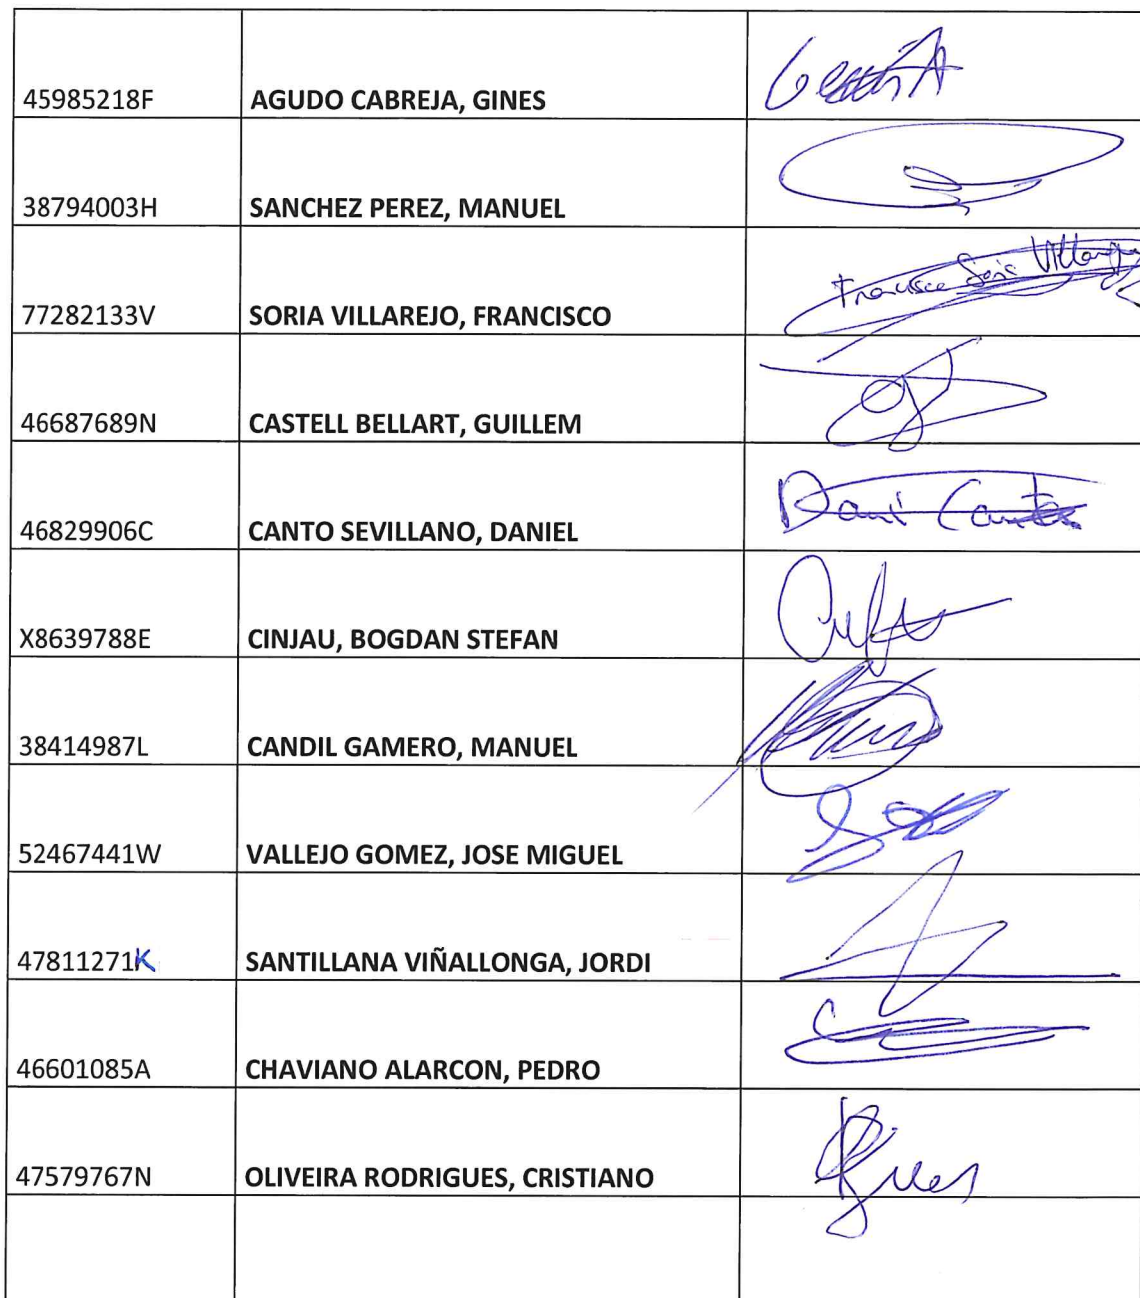 45985218F AGUDO CABREJA, GINES
38794003H SANCHEZ PEREZ, MANUEL
77282133V SORIA VILLAREJO, FRANCISCO Francisco Soria
46687689N CASTELL BELLART, GUILLEM
46829906C CANTO SEVILLANO, DANIEL Dani Canto
X8639788E CINJAU, BOGDAN STEFAN
38414987L CANDIL GAMERO, MANUEL
52467441W VALLEJO GOMEZ, JOSE MIGUEL
47811271K SANTILLANA VIÑALLONGA, JORDI
46601085A CHAVIANO ALARCON, PEDRO
47579767N OLIVEIRA RODRIGUES, CRISTIANO